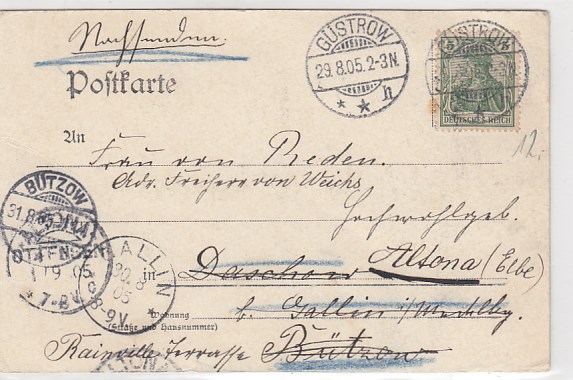 Nachsenden.
Postkarte
GÜSTROW
29.8.05.2-3N.
* * h
GÜSTROW
DEUTSCHES REICH
12.-
An
Frau von Reden.
Adr. Freiherr von Weichs
Hochwohlgeb.
BÜTZOW
31.8.05
OTTENSEN
1 9 05
7-8V
GALLIN
30 8
05
8-9V *
in Daschow Altona (Elbe)
b. Gallin i/Mecklbg.
Wohnung
(Straße und Hausnummer)
Rainville-Terrasse Bützow